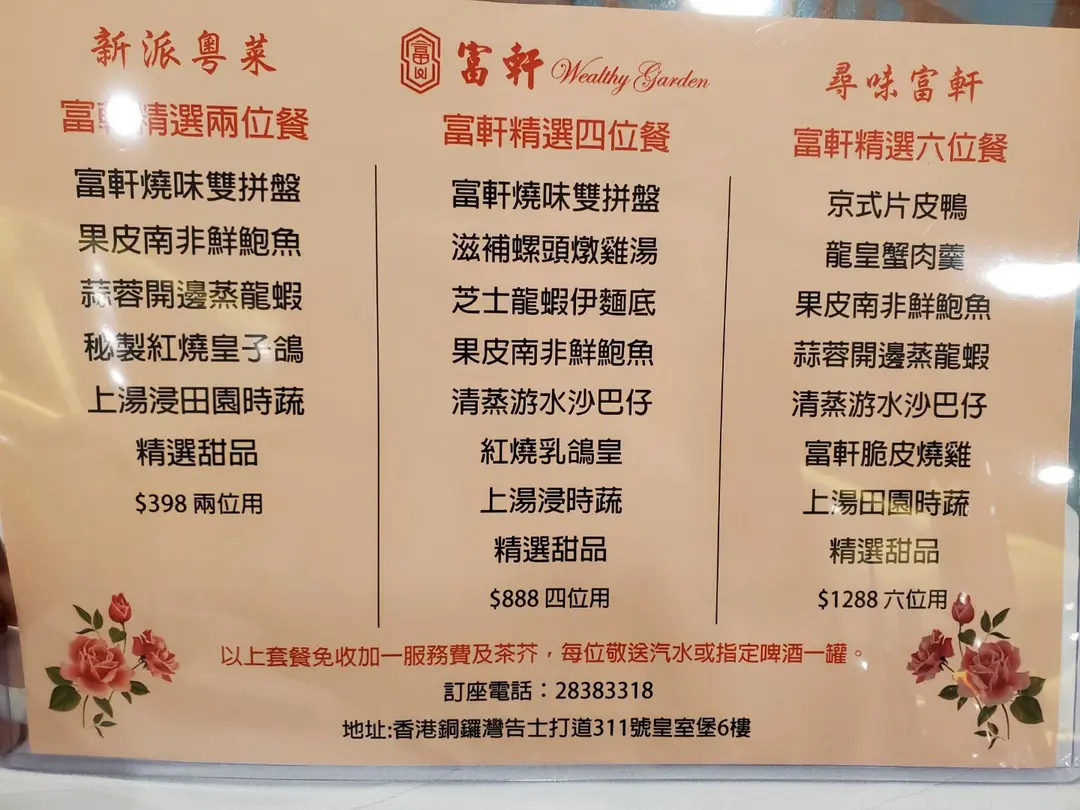 新派粵菜
富軒精選兩位餐
富軒燒味雙拼盤
果皮南非鮮鮑魚
蒜蓉開邊蒸龍蝦
秘製紅燒皇子鴿
上湯浸田園時蔬
精選甜品
$398 兩位用
富軒 Wealthy Garden
富軒精選四位餐
富軒燒味雙拼盤
滋補螺頭燉雞湯
芝士龍蝦伊麵底
果皮南非鮮鮑魚
清蒸游水沙巴仔
紅燒乳鴿皇
上湯浸時蔬
精選甜品
$888 四位用
尋味富軒
富軒精選六位餐
京式片皮鴨
龍皇蟹肉羹
果皮南非鮮鮑魚
蒜蓉開邊蒸龍蝦
清蒸游水沙巴仔
富軒脆皮燒雞
上湯田園時蔬
精選甜品
$1288 六位用
以上套餐免收加一服務費及茶芥，每位敬送汽水或指定啤酒一罐。
訂座電話：28383318
地址:香港銅鑼灣告士打道311號皇室堡6樓